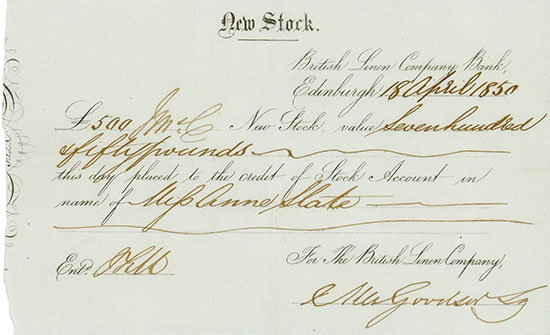 New Stock.
British Linen Company Bank,
Edinburgh 18 April 1850
£500 New Stock, value Seven hundred
& fifty pounds
this day placed to the credit of Stock Account in
name of Miss Anne Slate
Entd.
For The British Linen Company,